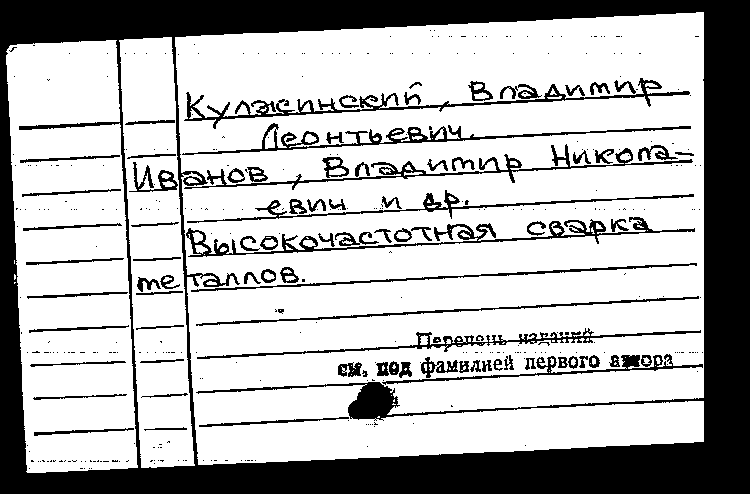 Кулжинский, Владимир
Леонтьевич.
Иванов, Владимир Никола-
евич и др.
Высокочастотная сварка
металлов.
Перечень изданий
см. под фамилией первого автора